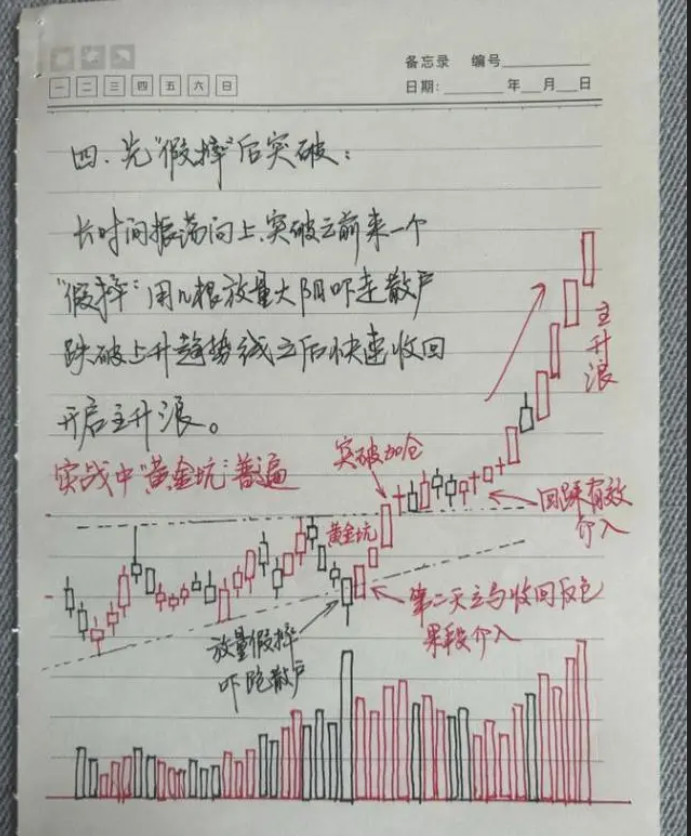 备忘录 编号
一 二 三 四 五 六 日
日期: 年 月 日
四、先"假摔"后突破:
长时间振荡向上,突破之前来一个
"假摔"用几根放量大阴吓走散户
跌破上升趋势线之后快速收回
开启主升浪。
实战中"黄金坑"普遍
主升浪
突破加仓
回踩有效
介入
黄金坑
第二天立马收回反包
果断介入
放量假摔
吓跑散户